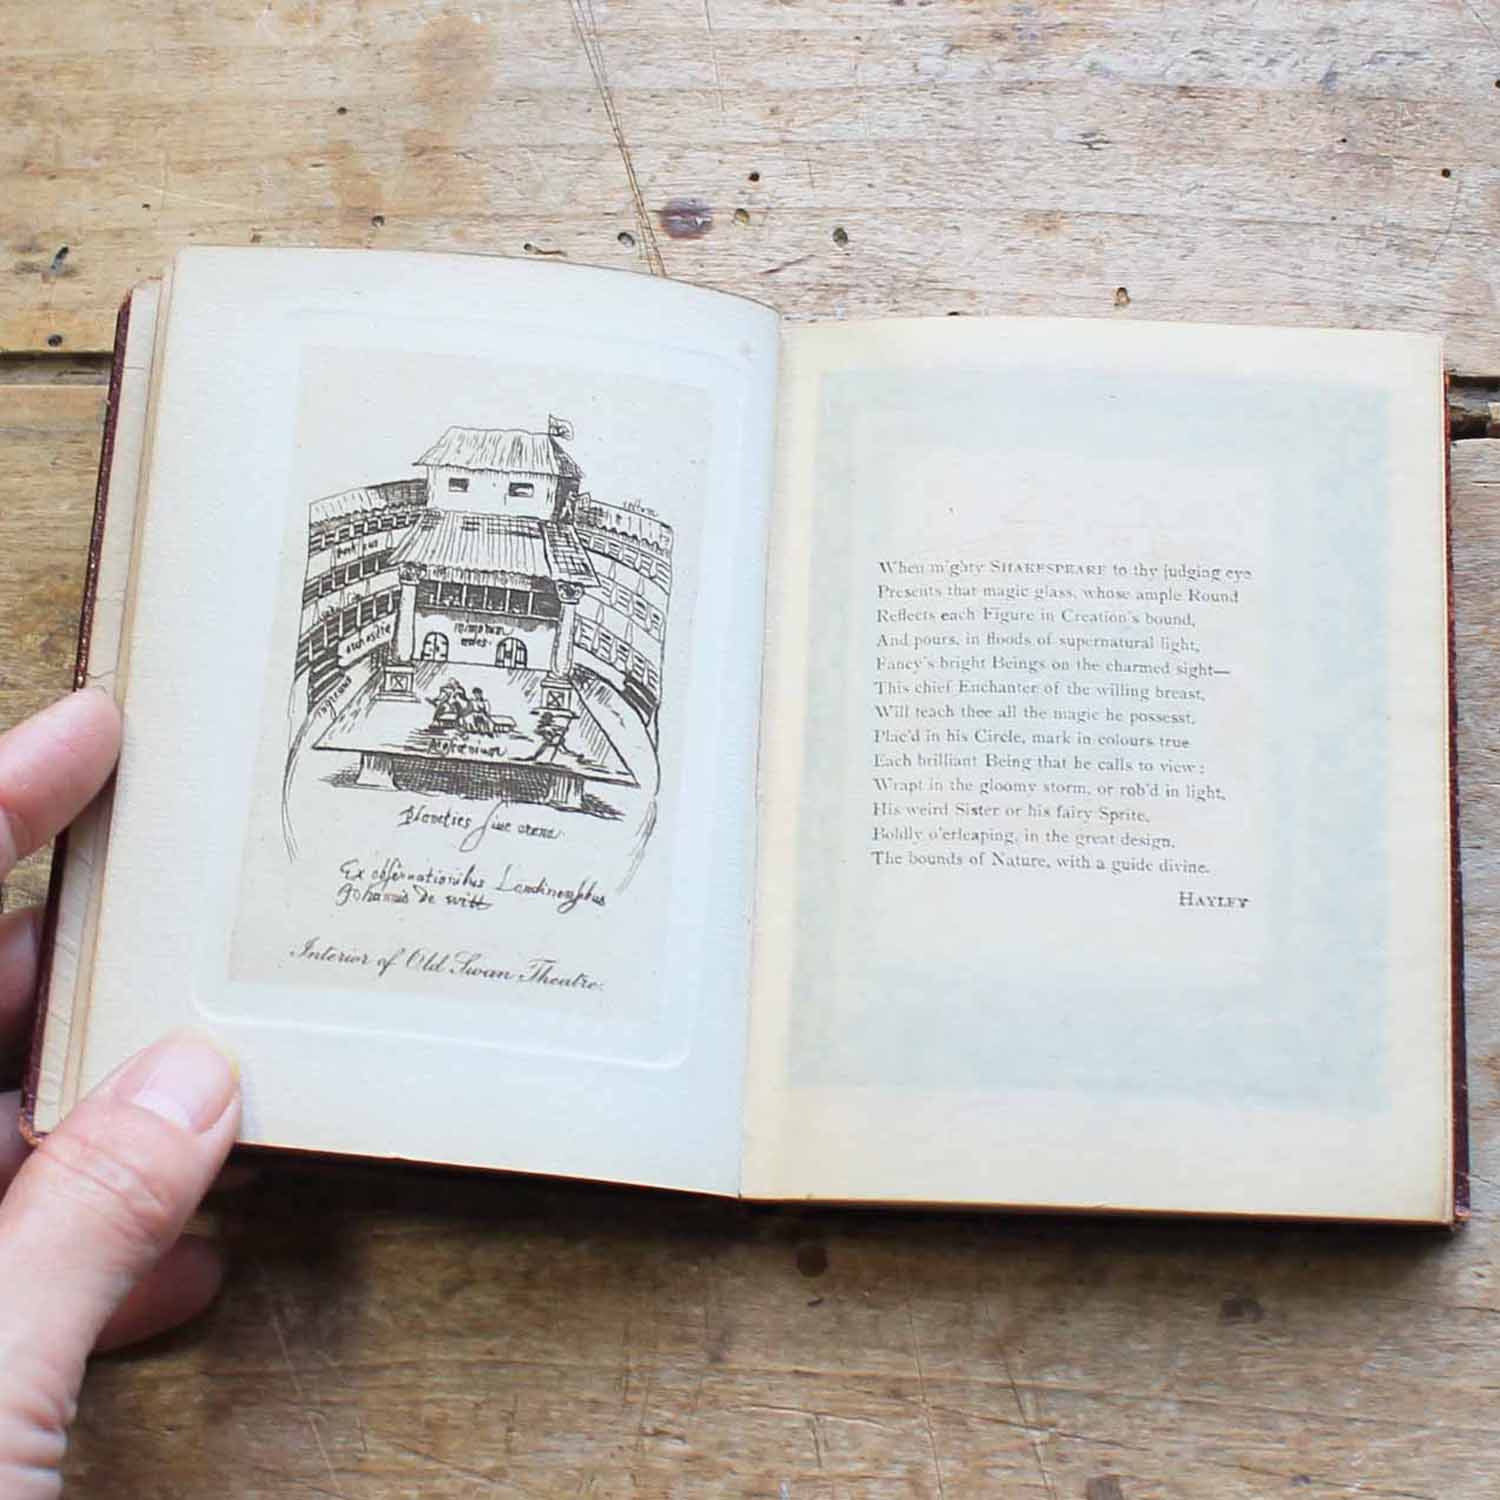 porticus
orchestra
ingressus
mimorum
ædes.
proscænium
Planities sive arena.
Ex observationibus Londinensibus
Johannis De witt
Interior of Old Swan Theatre.
When mighty SHAKESPEARE to thy judging eye
Presents that magic glass, whose ample Round
Reflects each Figure in Creation's bound,
And pours, in floods of supernatural light,
Fancy's bright Beings on the charmed sight—
This chief Enchanter of the willing breast,
Will teach thee all the magic he possesst.
Plac'd in his Circle, mark in colours true
Each brilliant Being that he calls to view:
Wrapt in the gloomy storm, or rob'd in light,
His weird Sister or his fairy Sprite,
Boldly o'erleaping, in the great design,
The bounds of Nature, with a guide divine.
HAYLEY